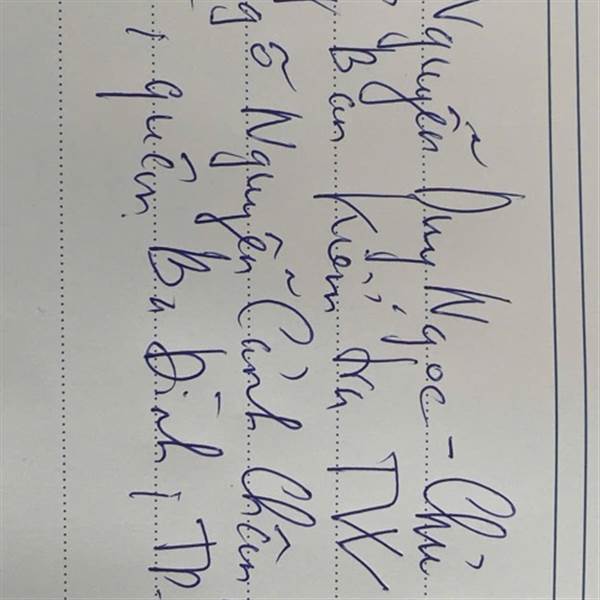 Nguyễn Duy Ngọc - Chủ
Ban kiểm tra TW
ngõ Nguyễn Cảnh Chân
, quận Ba Đình, TP.